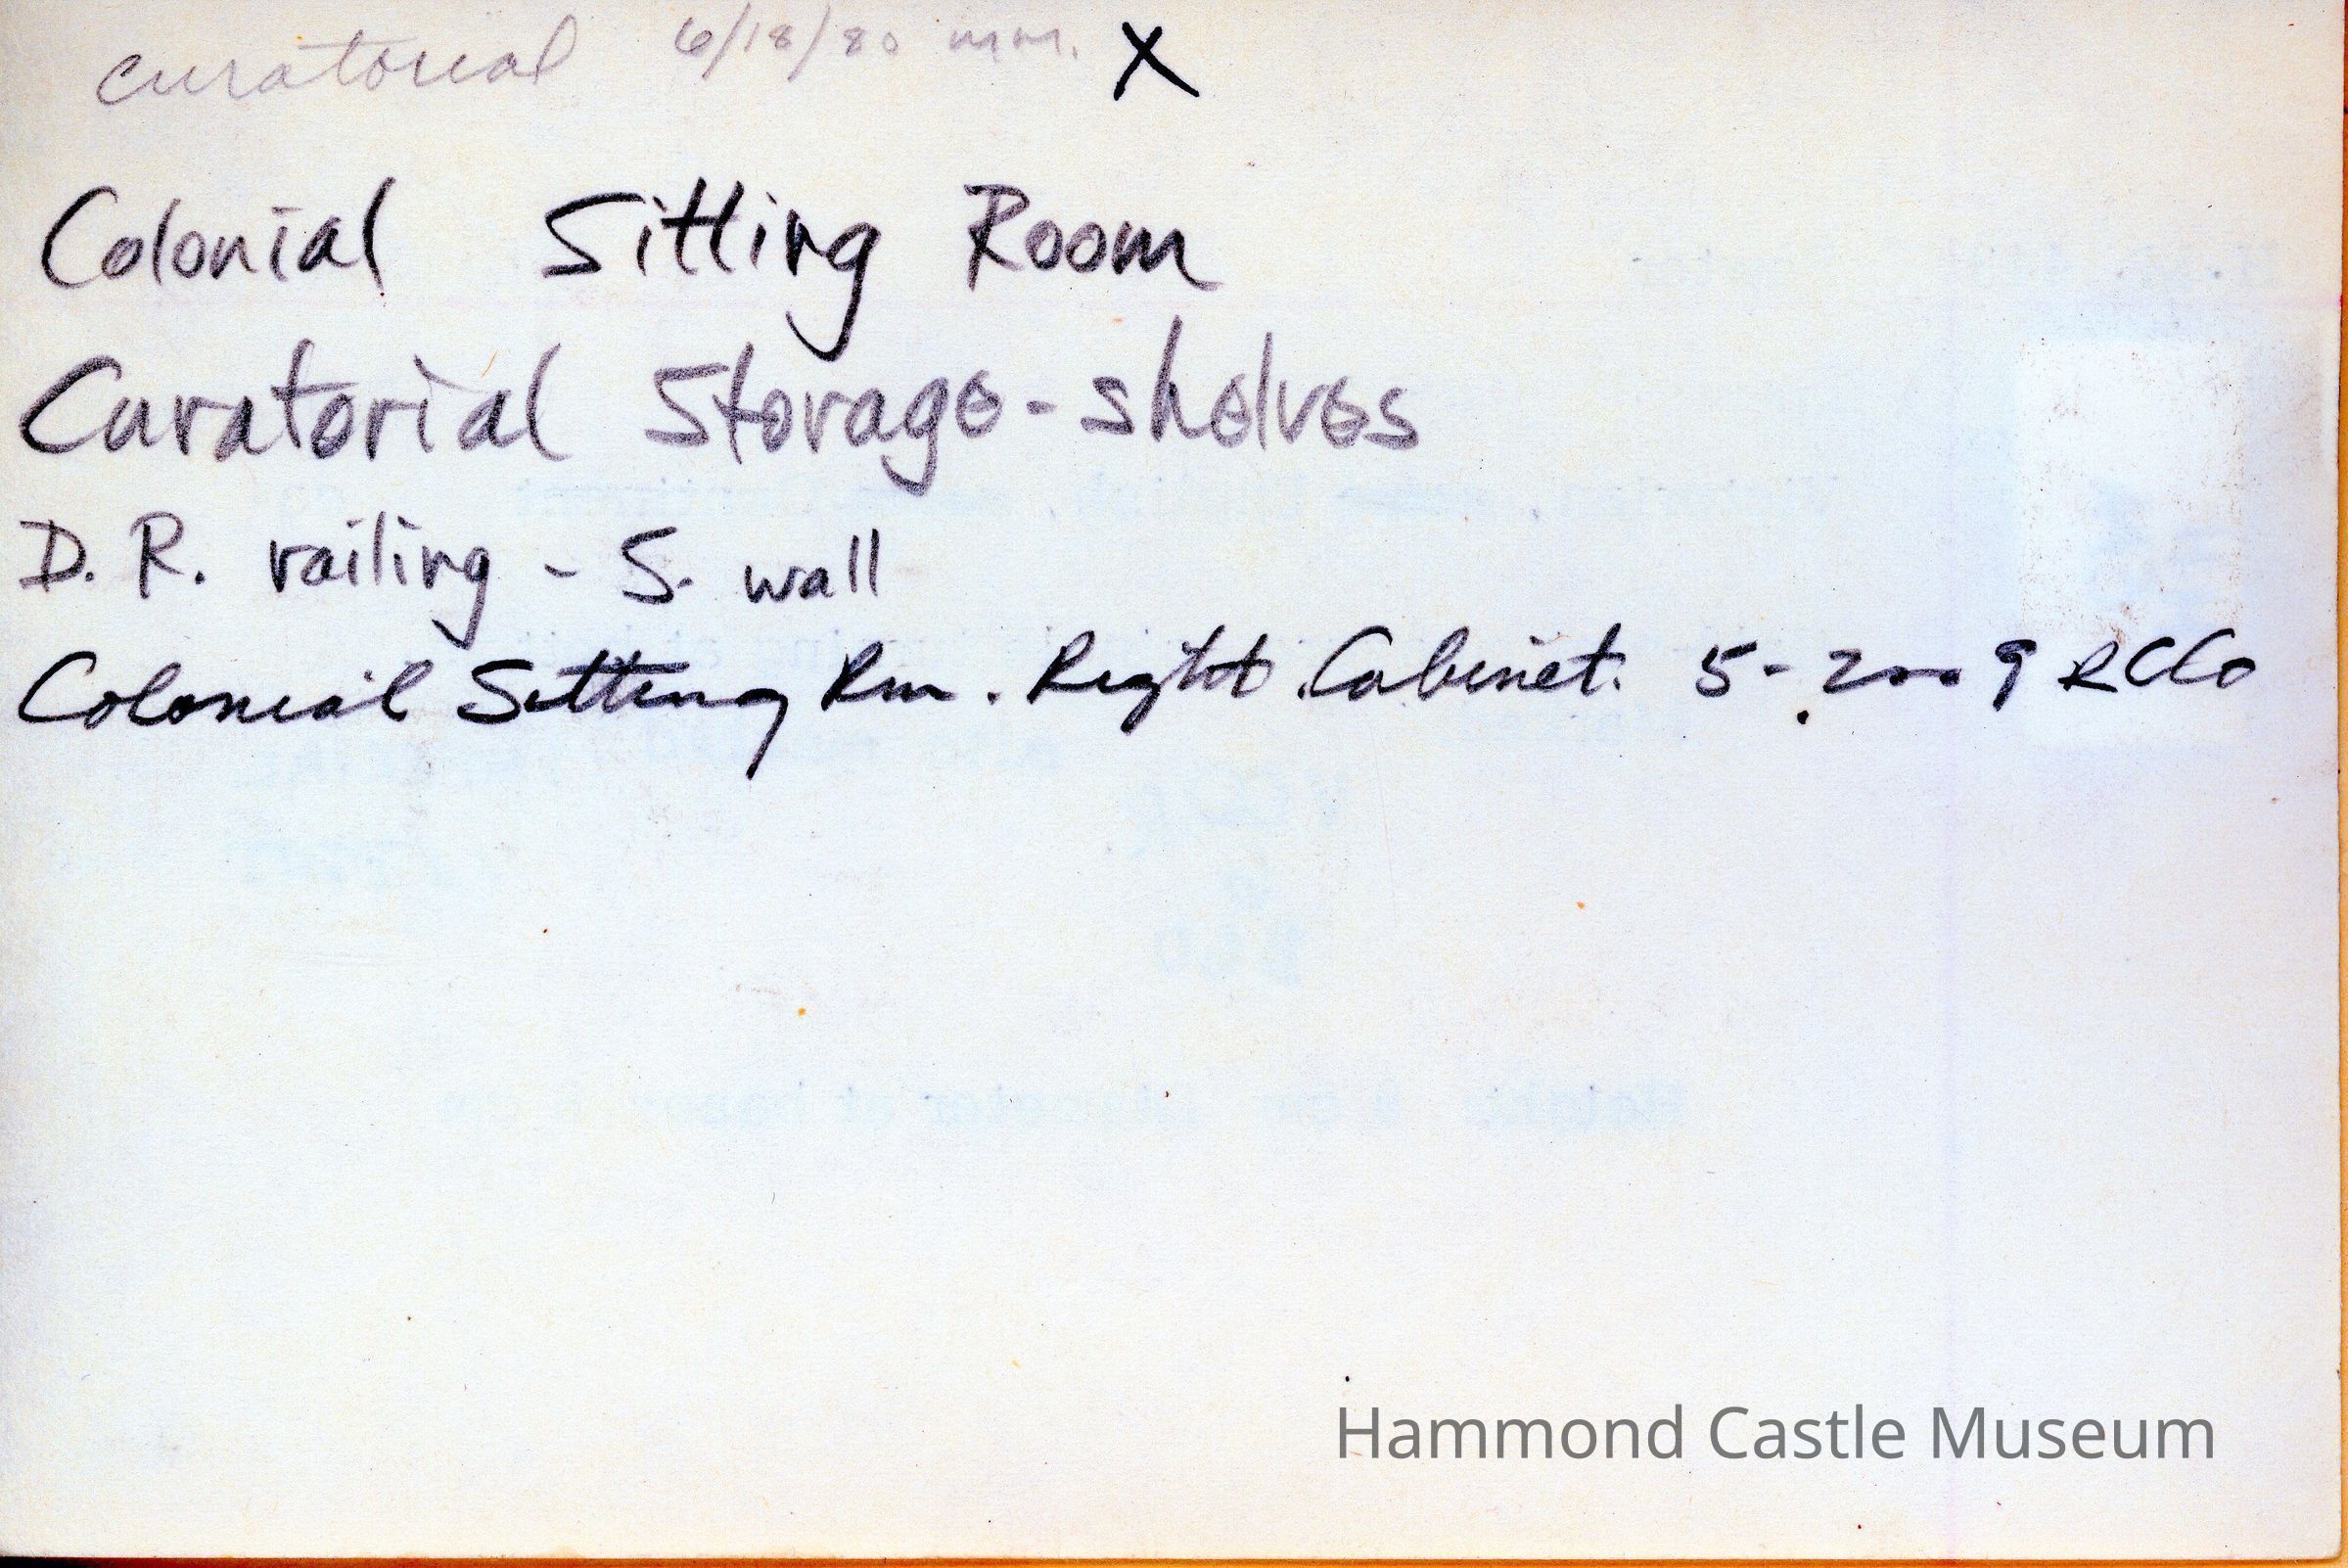 curatorial 6/18/80 mm. X
Colonial Sitting Room
Curatorial Storage - shelves
D. R. railing - S. wall
Colonial Sitting Rm. Right Cabinet. 5-2009
Hammond Castle Museum